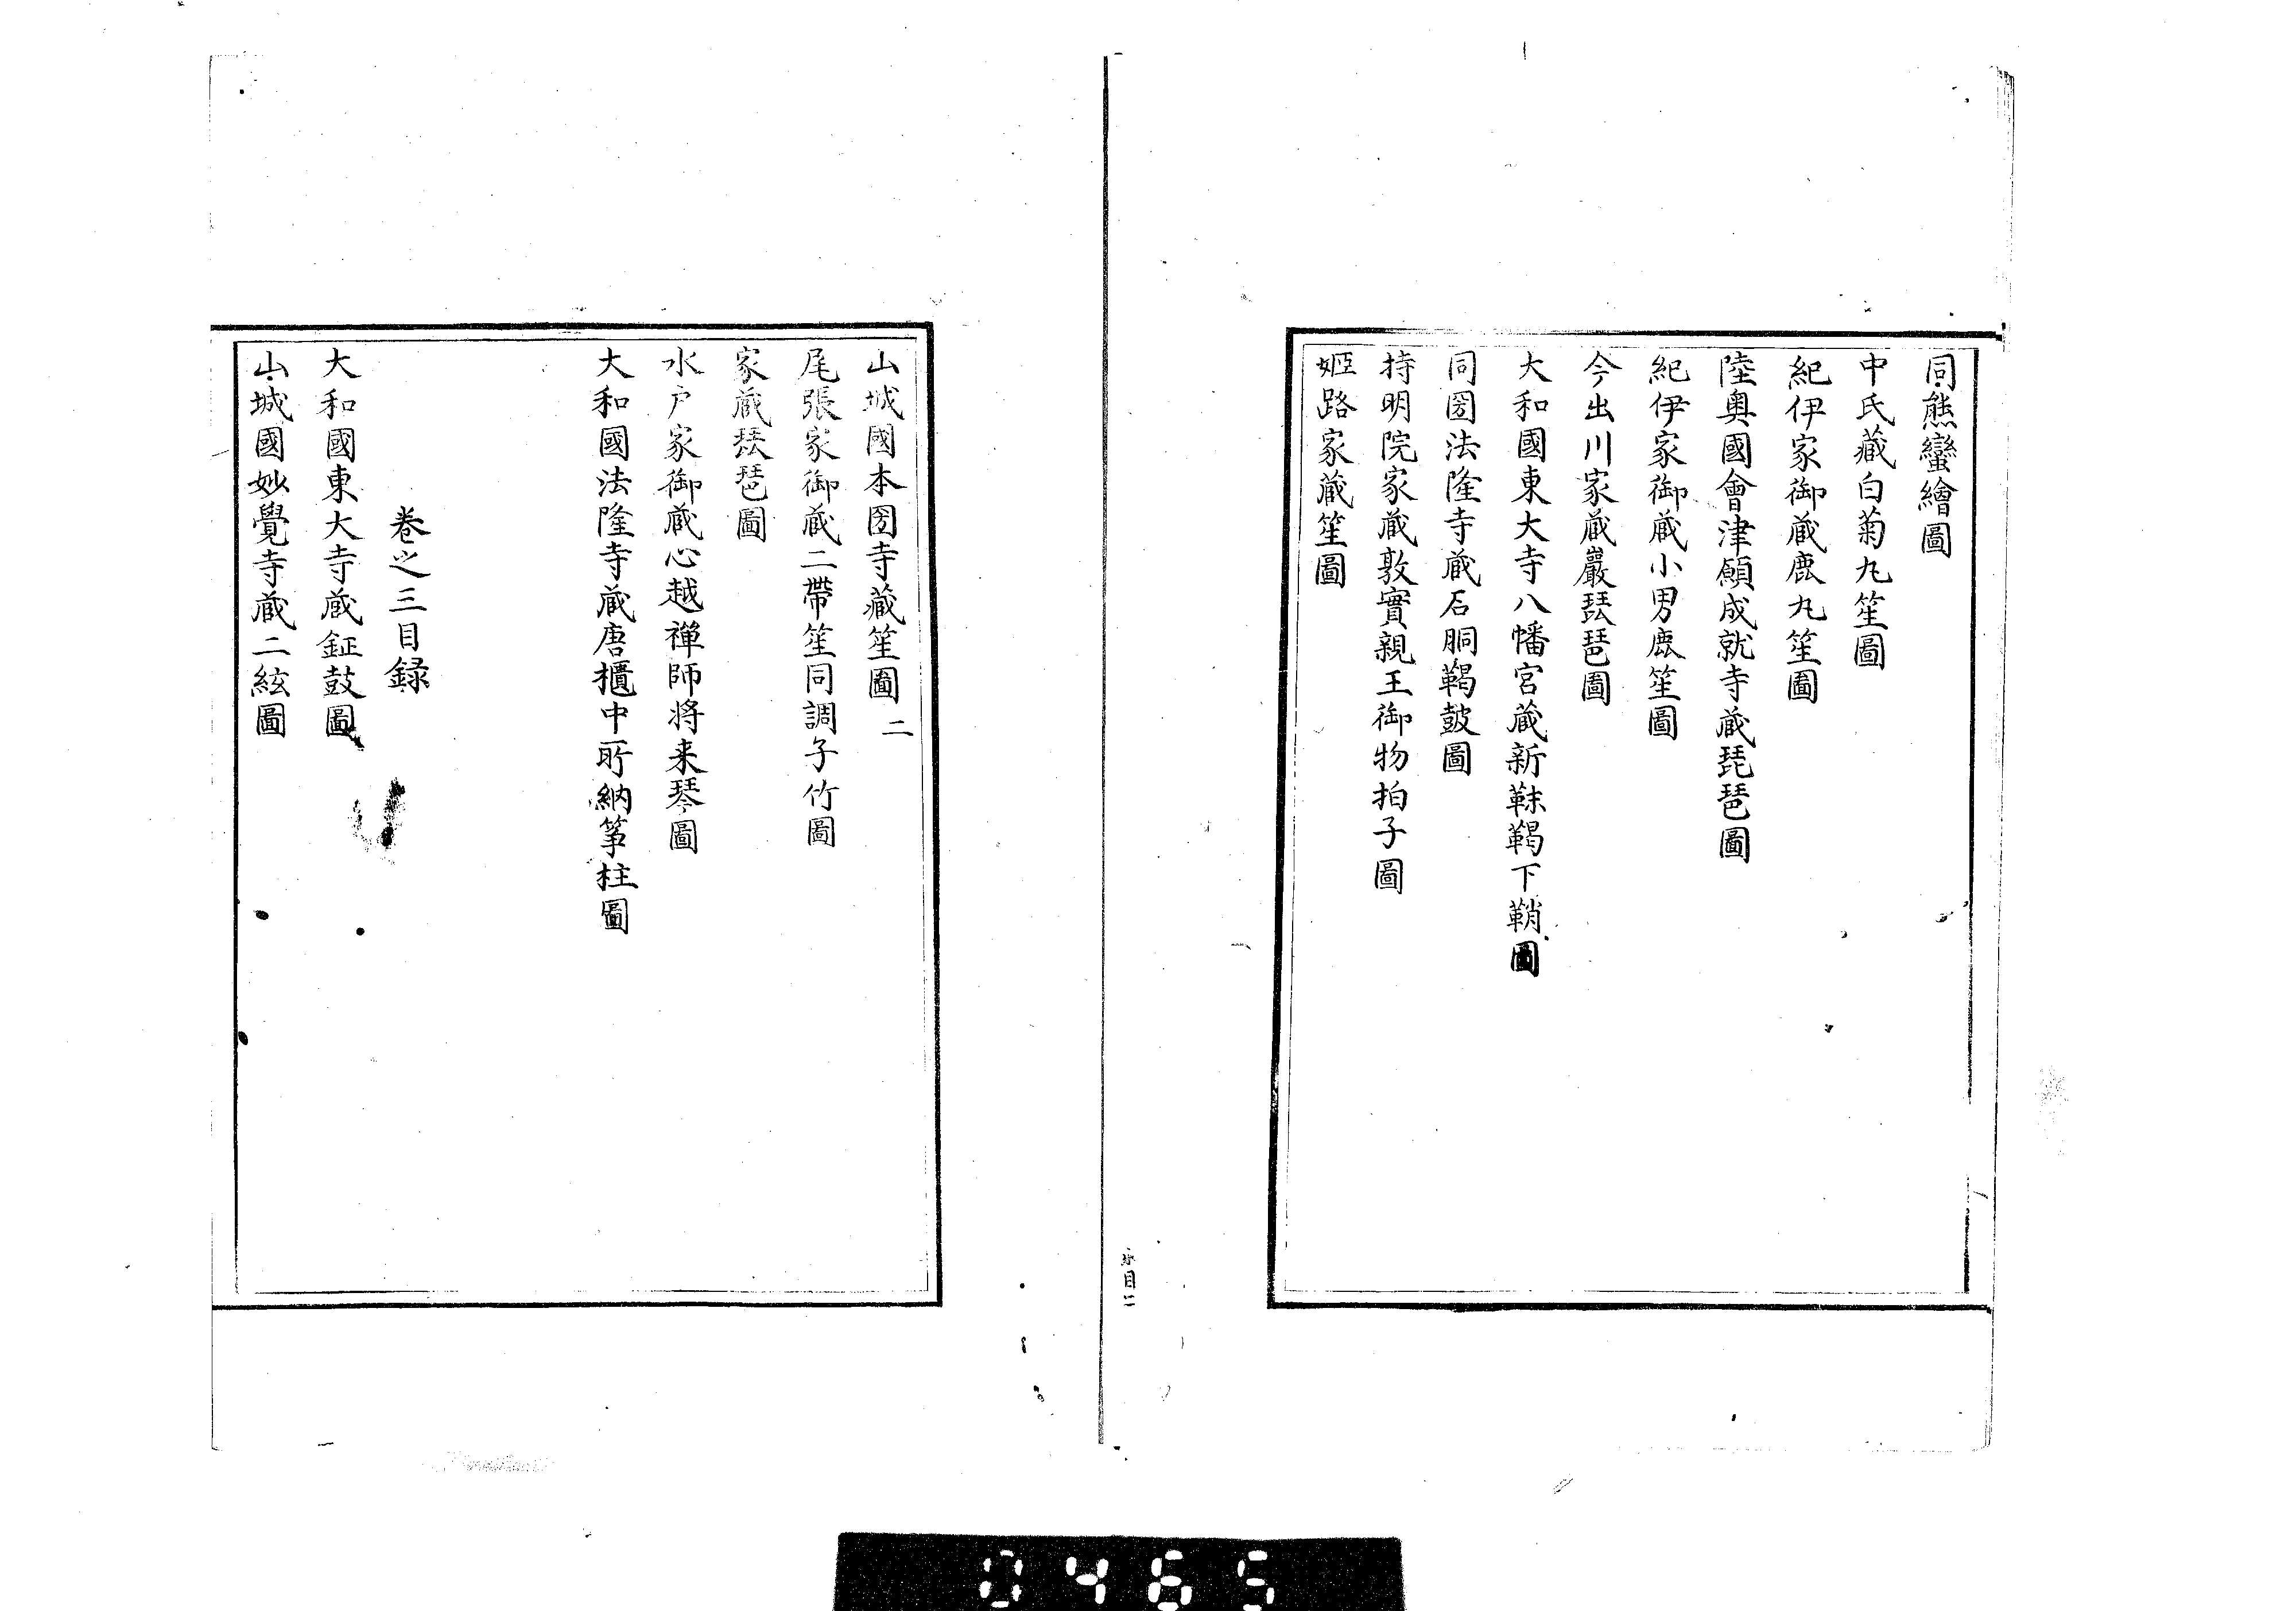 同熊蠻繪圖
中氏藏白菊丸笙圖
紀伊家御藏鹿丸笙圖
陸奥國會津願成就寺藏琵琶圖
紀伊家御藏小男鹿笙圖
今出川家藏巖琵琶圖
大和國東大寺八幡宮藏新靺鞨下鞘圖
同圀法隆寺藏石胴鞨鼓圖
持明院家藏敦實親王御物拍子圖
姫路家藏笙圖
山城國本圀寺藏笙圖二
尾張家御藏二帶笙同調子竹圖
家藏琵琶圖
水戸家御藏心越禪師将来琴圖
大和國法隆寺藏唐櫃中所納箏柱圖
卷之三目録
大和國東大寺藏鉦鼓圖
山城國妙覺寺藏二絃圖
目二
0465